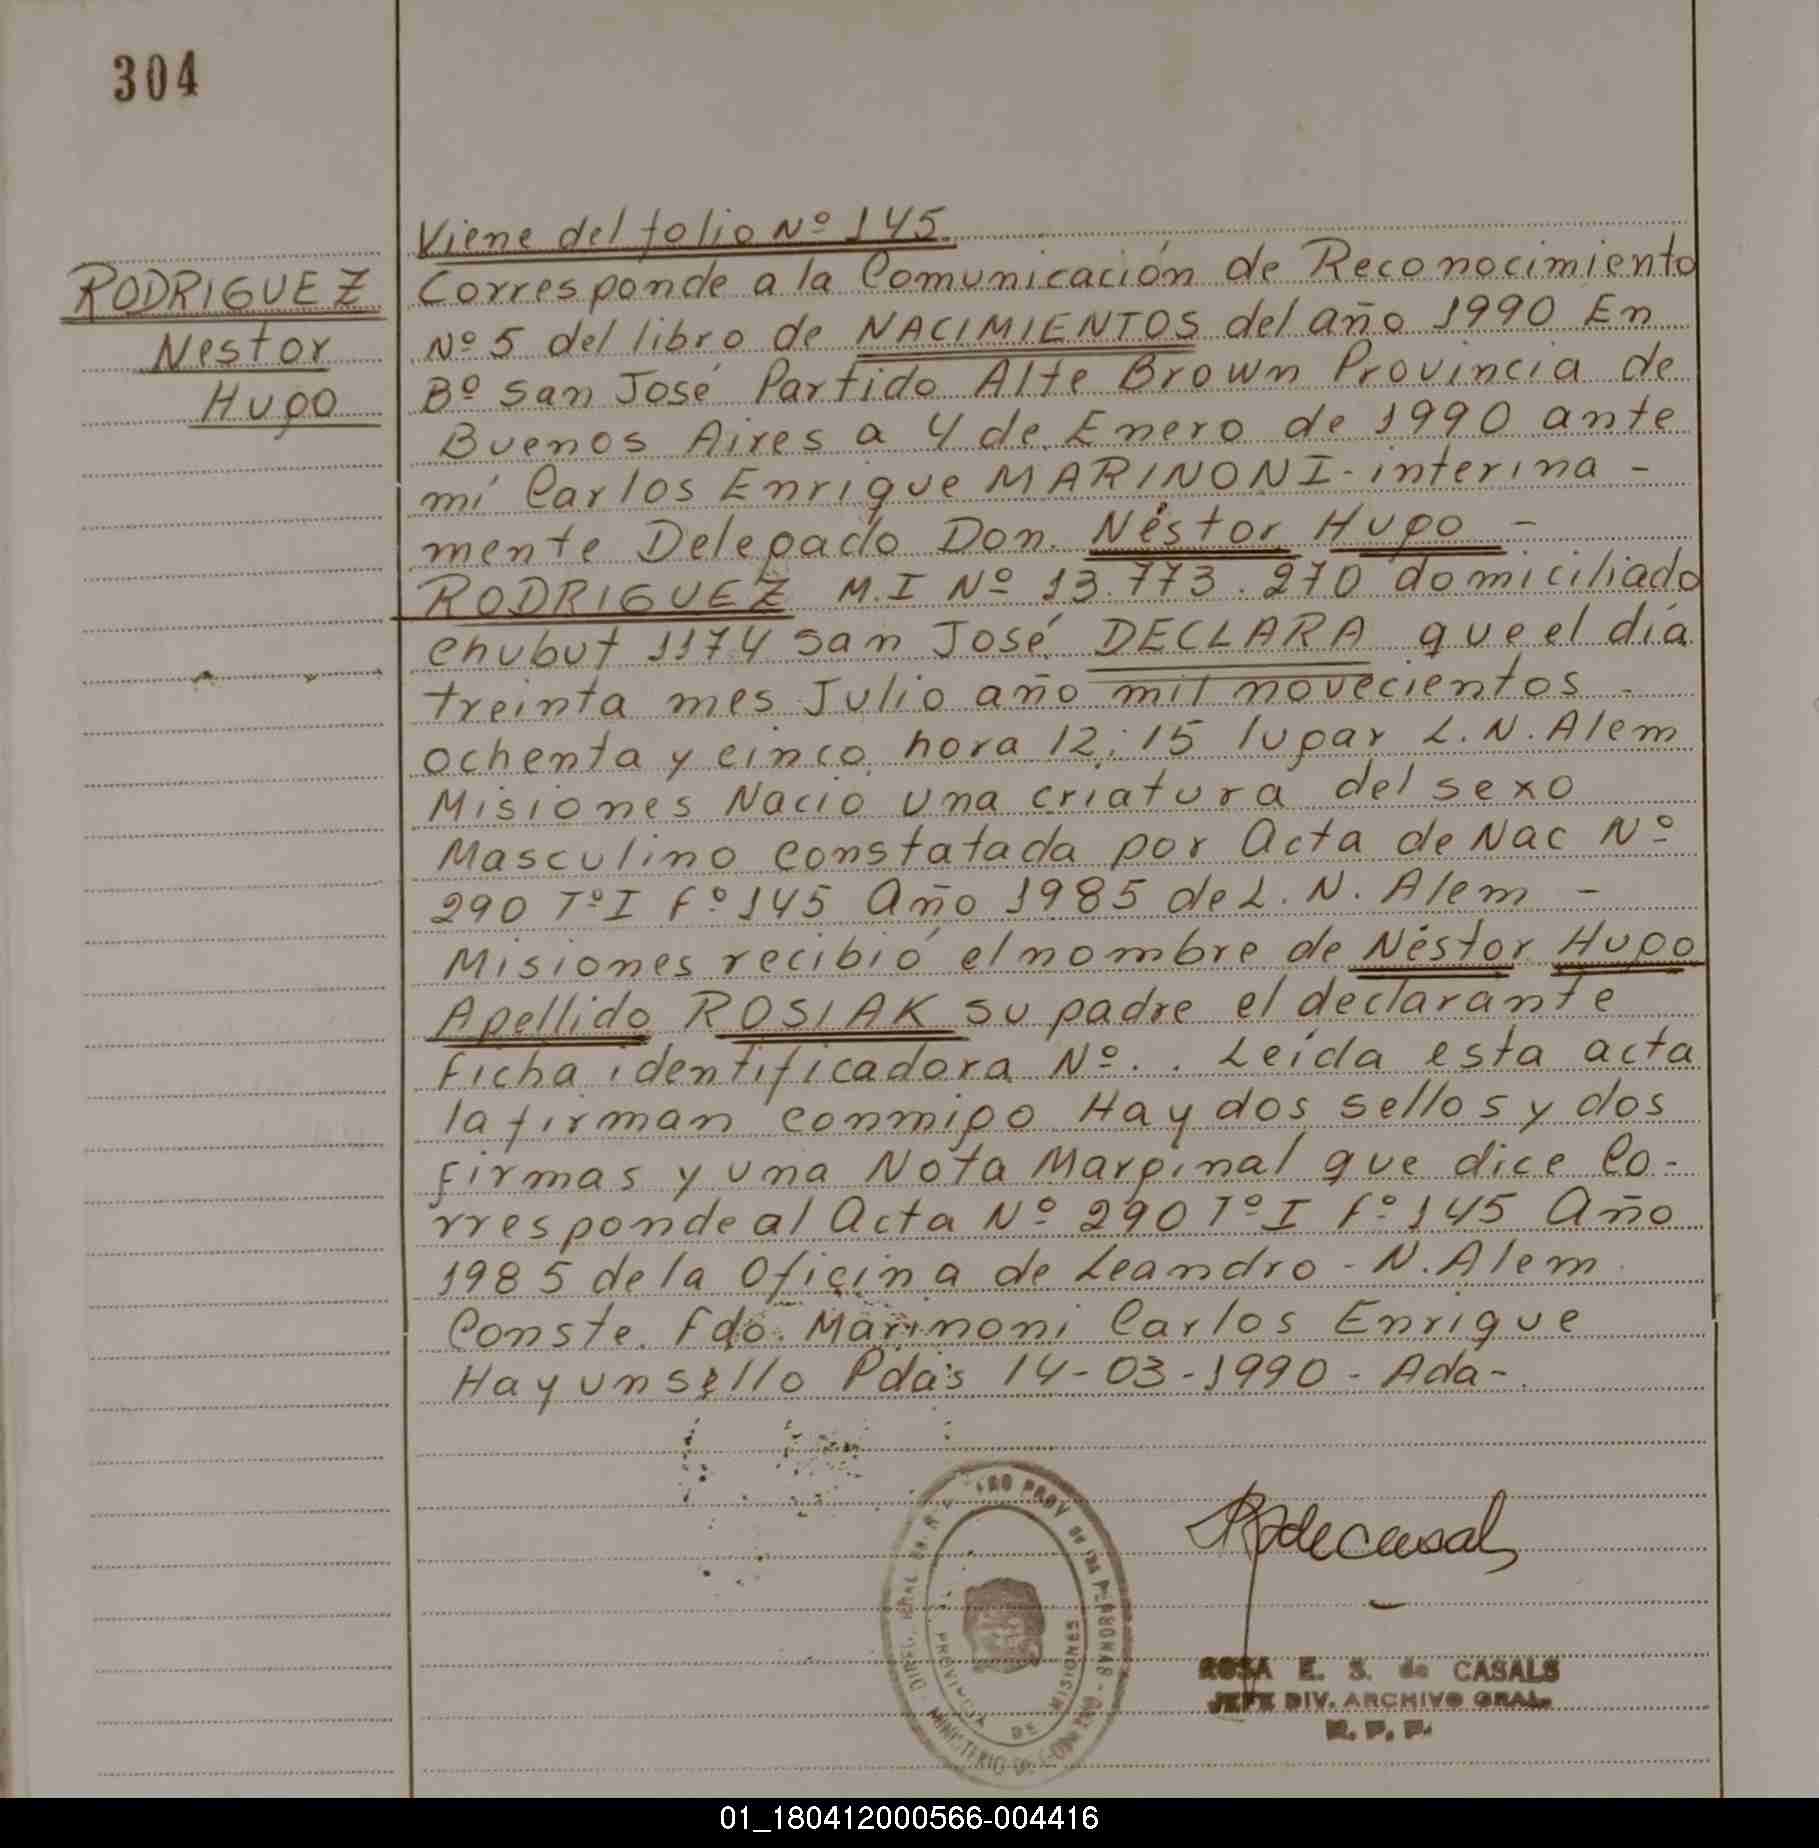 304
RODRIGUEZ
Nestor
Hugo
Viene del folio Nº 145.
Corresponde a la Comunicación de Reconocimiento
Nº 5 del libro de NACIMIENTOS del año 1990 En
Bº San José Partido Alte Brown Provincia de
Buenos Aires a 4 de Enero de 1990 ante
mí Carlos Enrique MARINONI - interina -
mente Delegado Don. Néstor Hugo -
RODRIGUEZ M.I Nº 13.773.270 domiciliado
Chubut 1174 San José DECLARA que el día
treinta mes Julio año mil novecientos -
ochenta y cinco hora 12:15 lugar L.N. Alem
Misiones Nacio una criatura del sexo
Masculino constatada por Acta de Nac Nº
290 Tº I Fº 145 Año 1985 de L. N. Alem -
Misiones recibió el nombre de Néstor Hugo
Apellido ROSIAK su padre el declarante
Ficha identificadora Nº. . Leída esta acta
la firman conmigo Hay dos sellos y dos
firmas y una Nota Marginal que dice Co-
rresponde al Acta Nº 290 Tº I Fº 145 Año
1985 de la Oficina de Leandro - N. Alem
Conste. Fdo. Marinoni Carlos Enrique
Hay un sello Pdas 14-03-1990 - Ada-.
PROVINCIA DE MISIONES
ROSA E. S. de CASALS
JEFE DIV. ARCHIVO GRAL.
R. P. P.
01_180412000566-004416